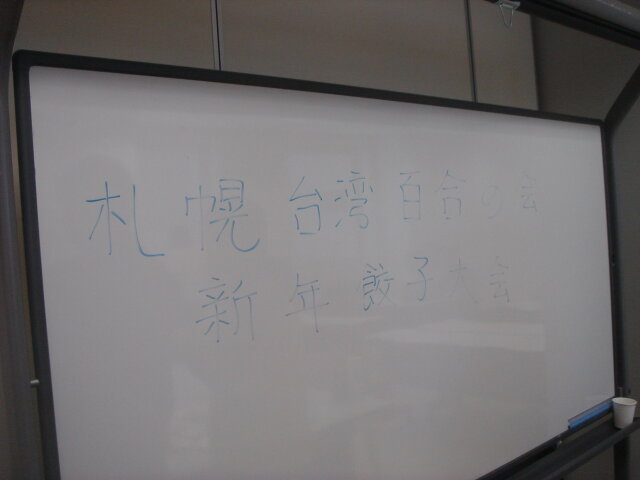 札幌台湾百合の会
新年餃子大会